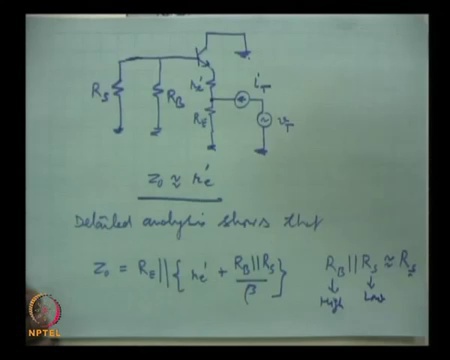 R_S
R_B
r_e'
R_E
i_T
v_T
z_o ≈ r_e'
Detailed analysis shows that
z_o = R_E || { r_e' + R_B||R_S / β }
R_B || R_S ≈ R_S
↓ ↓
High Low
NPTEL